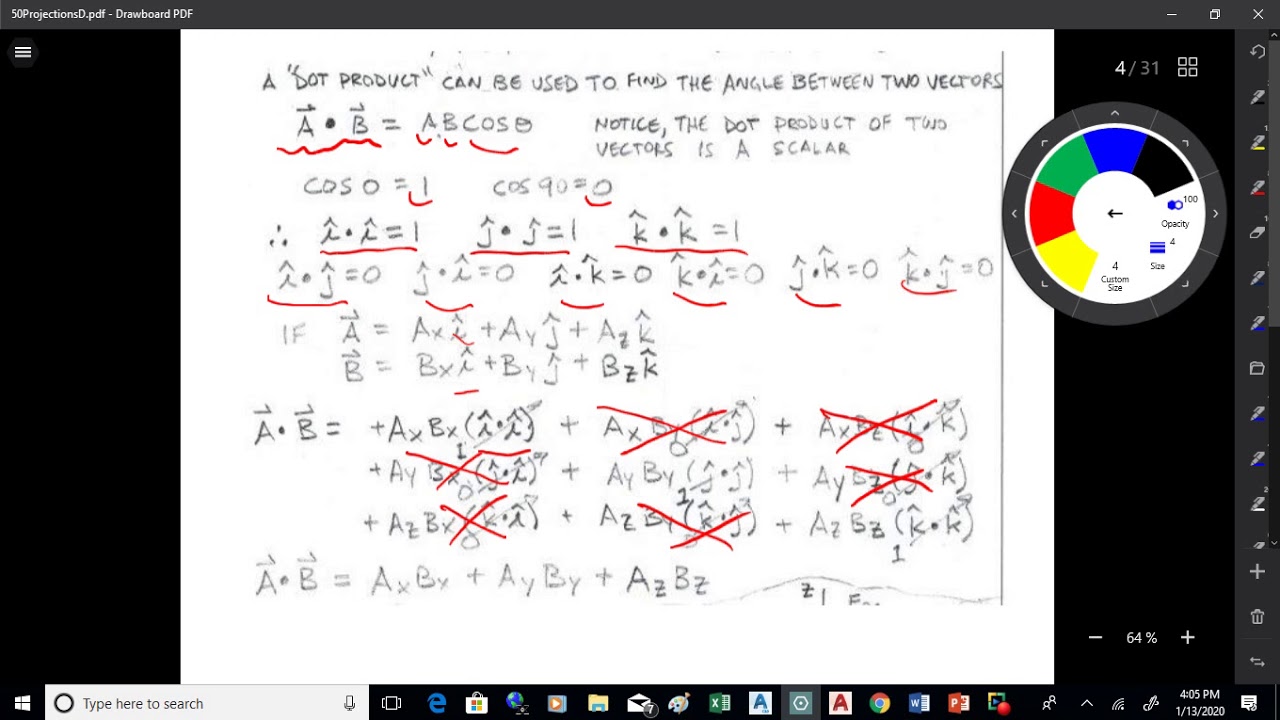 50ProjectionsD.pdf - Drawboard PDF
4 / 31
A "DOT PRODUCT" CAN BE USED TO FIND THE ANGLE BETWEEN TWO VECTORS
A⃗ • B⃗ = ABCOSθ
NOTICE, THE DOT PRODUCT OF TWO
VECTORS IS A SCALAR
COS 0 = 1 COS 90 = 0
∴ î • î = 1 ĵ • ĵ = 1 k̂ • k̂ = 1
î • ĵ = 0 ĵ • î = 0 î • k̂ = 0 k̂ • î = 0 ĵ • k̂ = 0 k̂ • ĵ = 0
IF A⃗ = Axî + Ayĵ + Azk̂
B⃗ = Bxî + Byĵ + Bzk̂
A⃗ • B⃗ = + AxBx(î • î) 1 + AxBy(î • ĵ) 0 + AxBz(î • k̂) 0
+ AyBx(ĵ • î) 0 + AyBy(ĵ • ĵ) 1 + AyBz(ĵ • k̂) 0
+ AzBx(k̂ • î) 0 + AzBy(k̂ • ĵ) 0 + AzBz(k̂ • k̂) 1
A⃗ • B⃗ = AxBx + AyBy + AzBz
z
100
Opacity
4
Size
4
Custom
Size
64 %
Type here to search
7
4:05 PM
1/13/2020